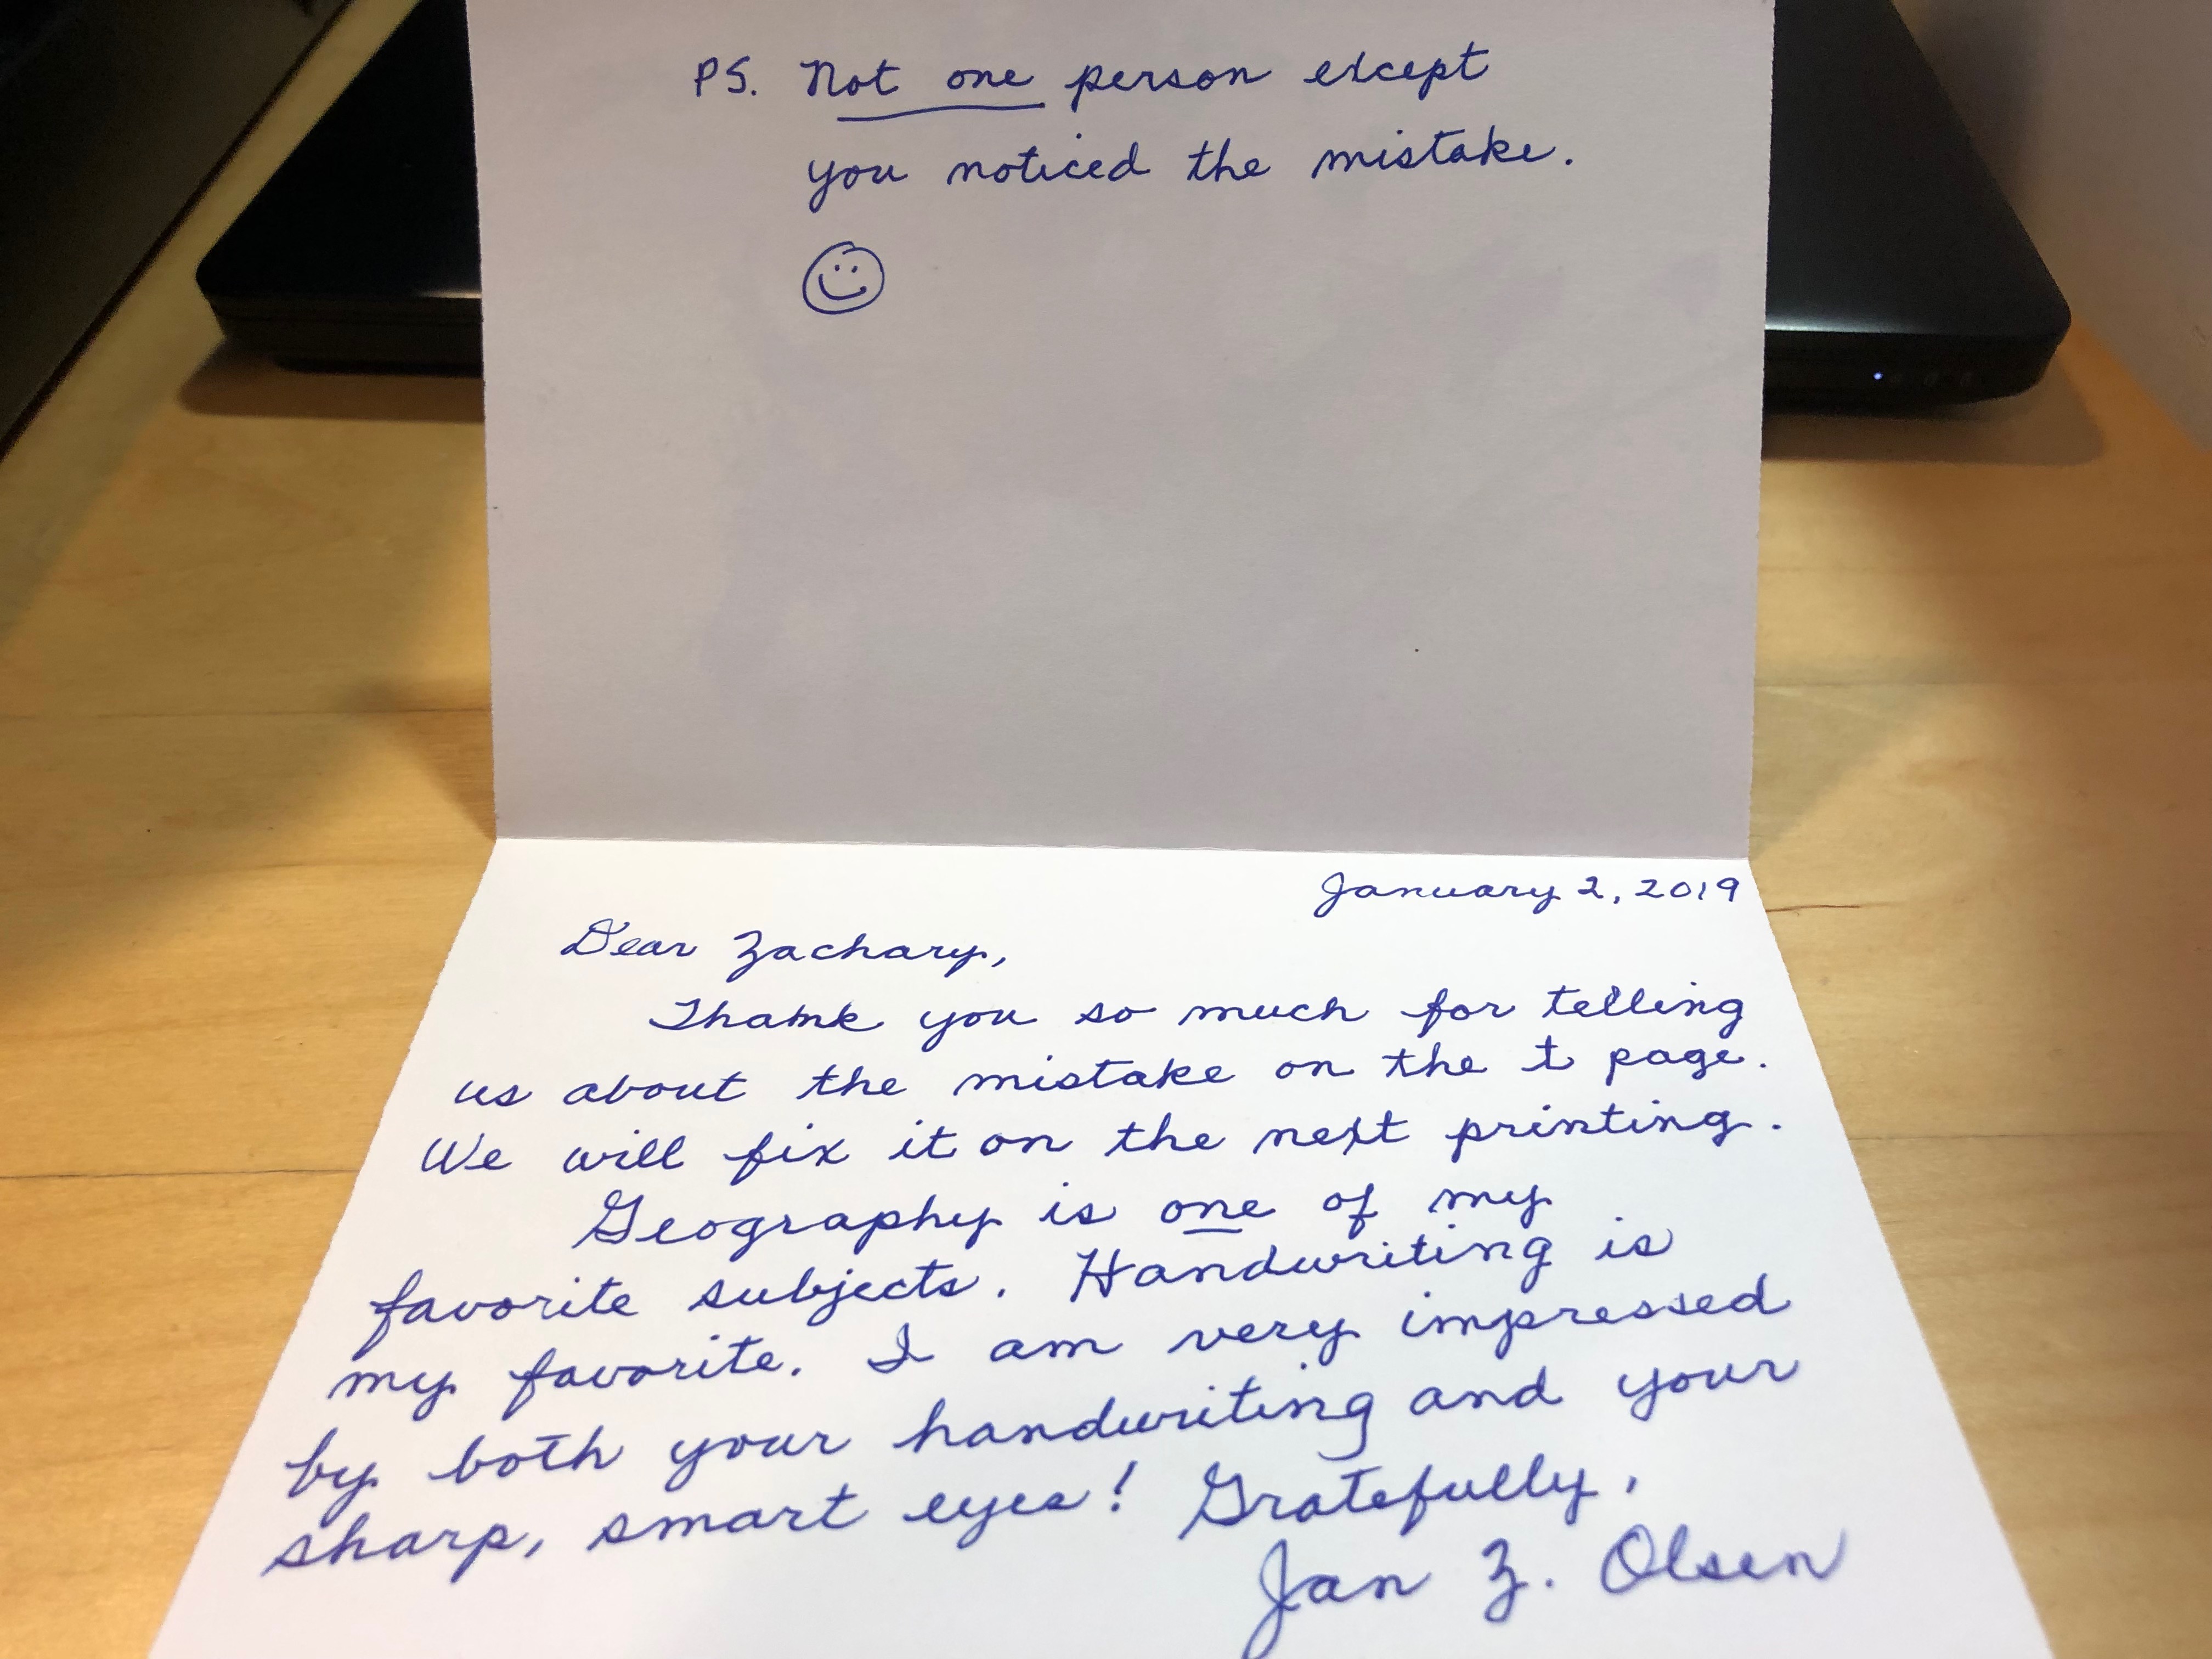 PS. Not one person except
you noticed the mistake.
January 2, 2019
Dear Zachary,
Thank you so much for telling
us about the mistake on the t page.
We will fix it on the next printing.
Geography is one of my
favorite subjects. Handwriting is
my favorite. I am very impressed
by both your handwriting and your
sharp, smart eyes! Gratefully,
Jan Z. Olsen